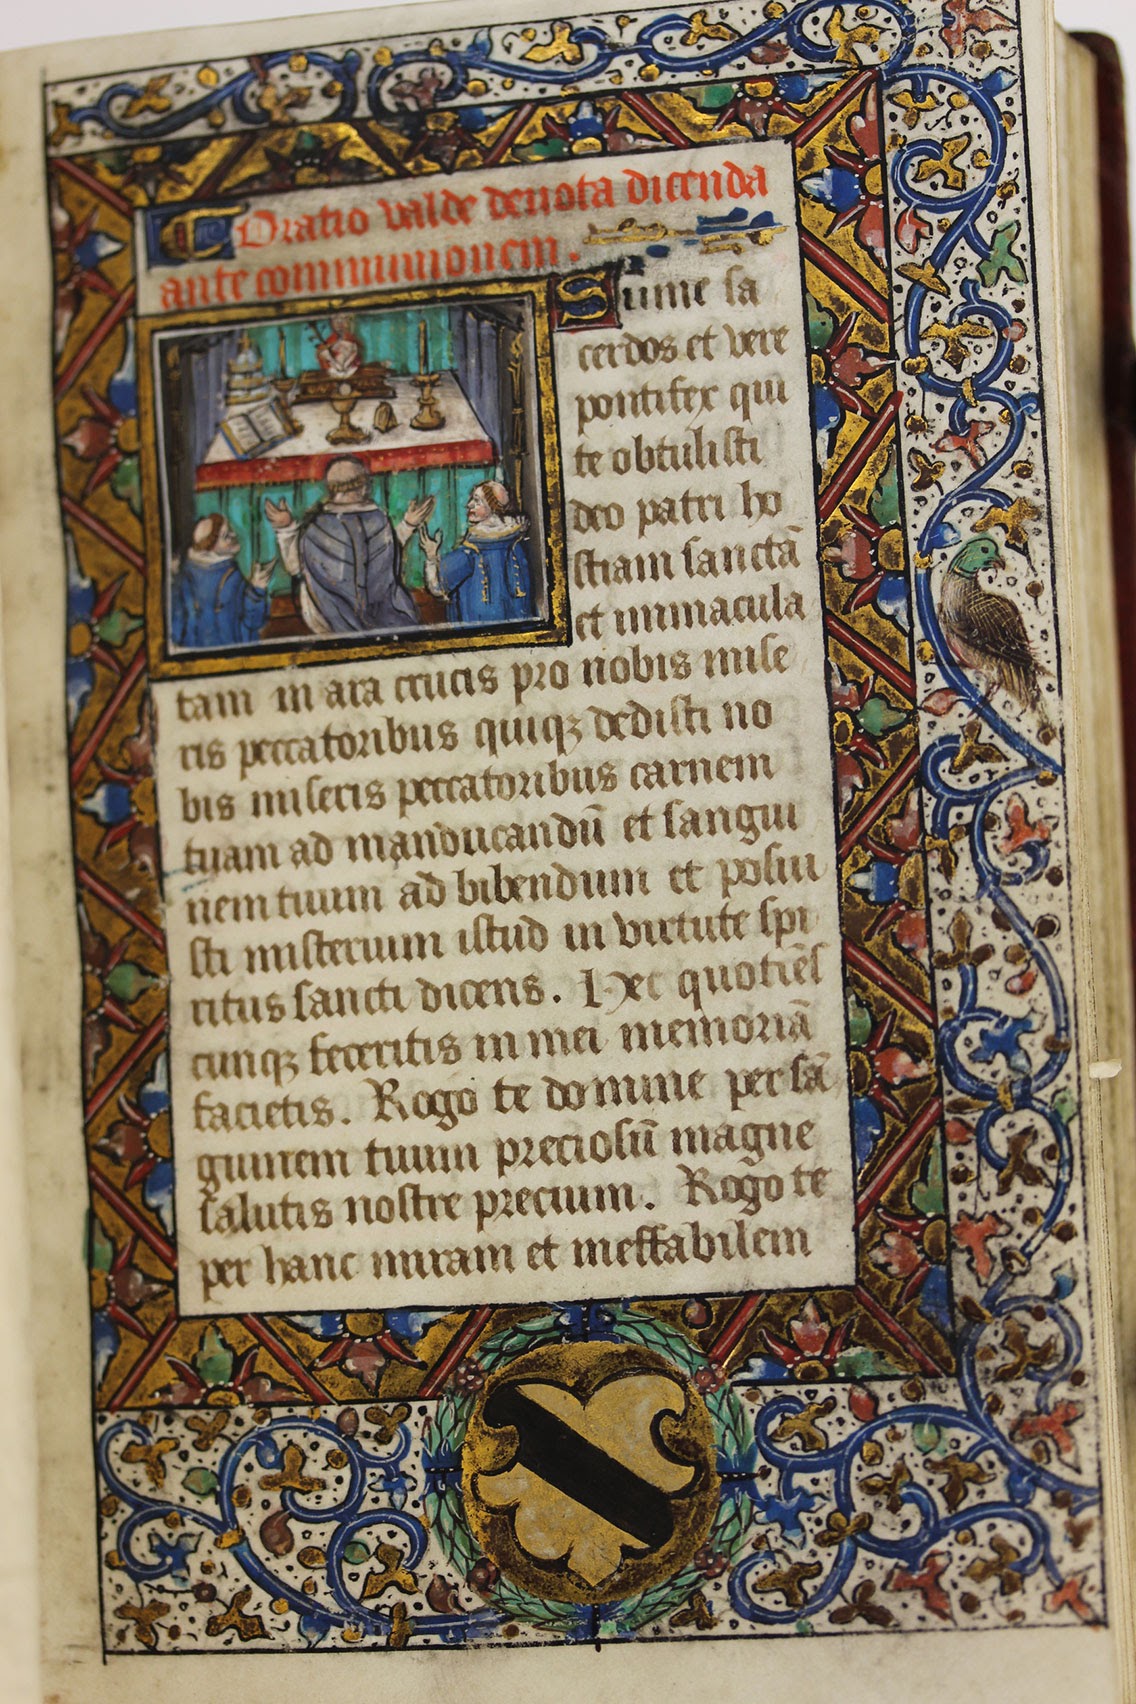 Oratio valde deuota dicenda
ante communionem.
Sume sa
cerdos et vere
pontifex qui
te obtulisti
deo patri ho
stiam sanctā
et immacula
tam in ara crucis pro nobis mise
ris peccatoribus quiqꝫ dedisti no
bis miseris peccatoribus carnem
tuam ad manducandū et sangui
nem tuum ad bibendum et posui
sti misterium istud in virtute spi
ritus sancti dicens. Hec quotiēs
cunqꝫ feceritis in mei memoriā
facietis. Rogo te domine per sā
guinem tuum preciosū magne
salutis nostre precium. Rogo te
per hanc miram et ineffabilem